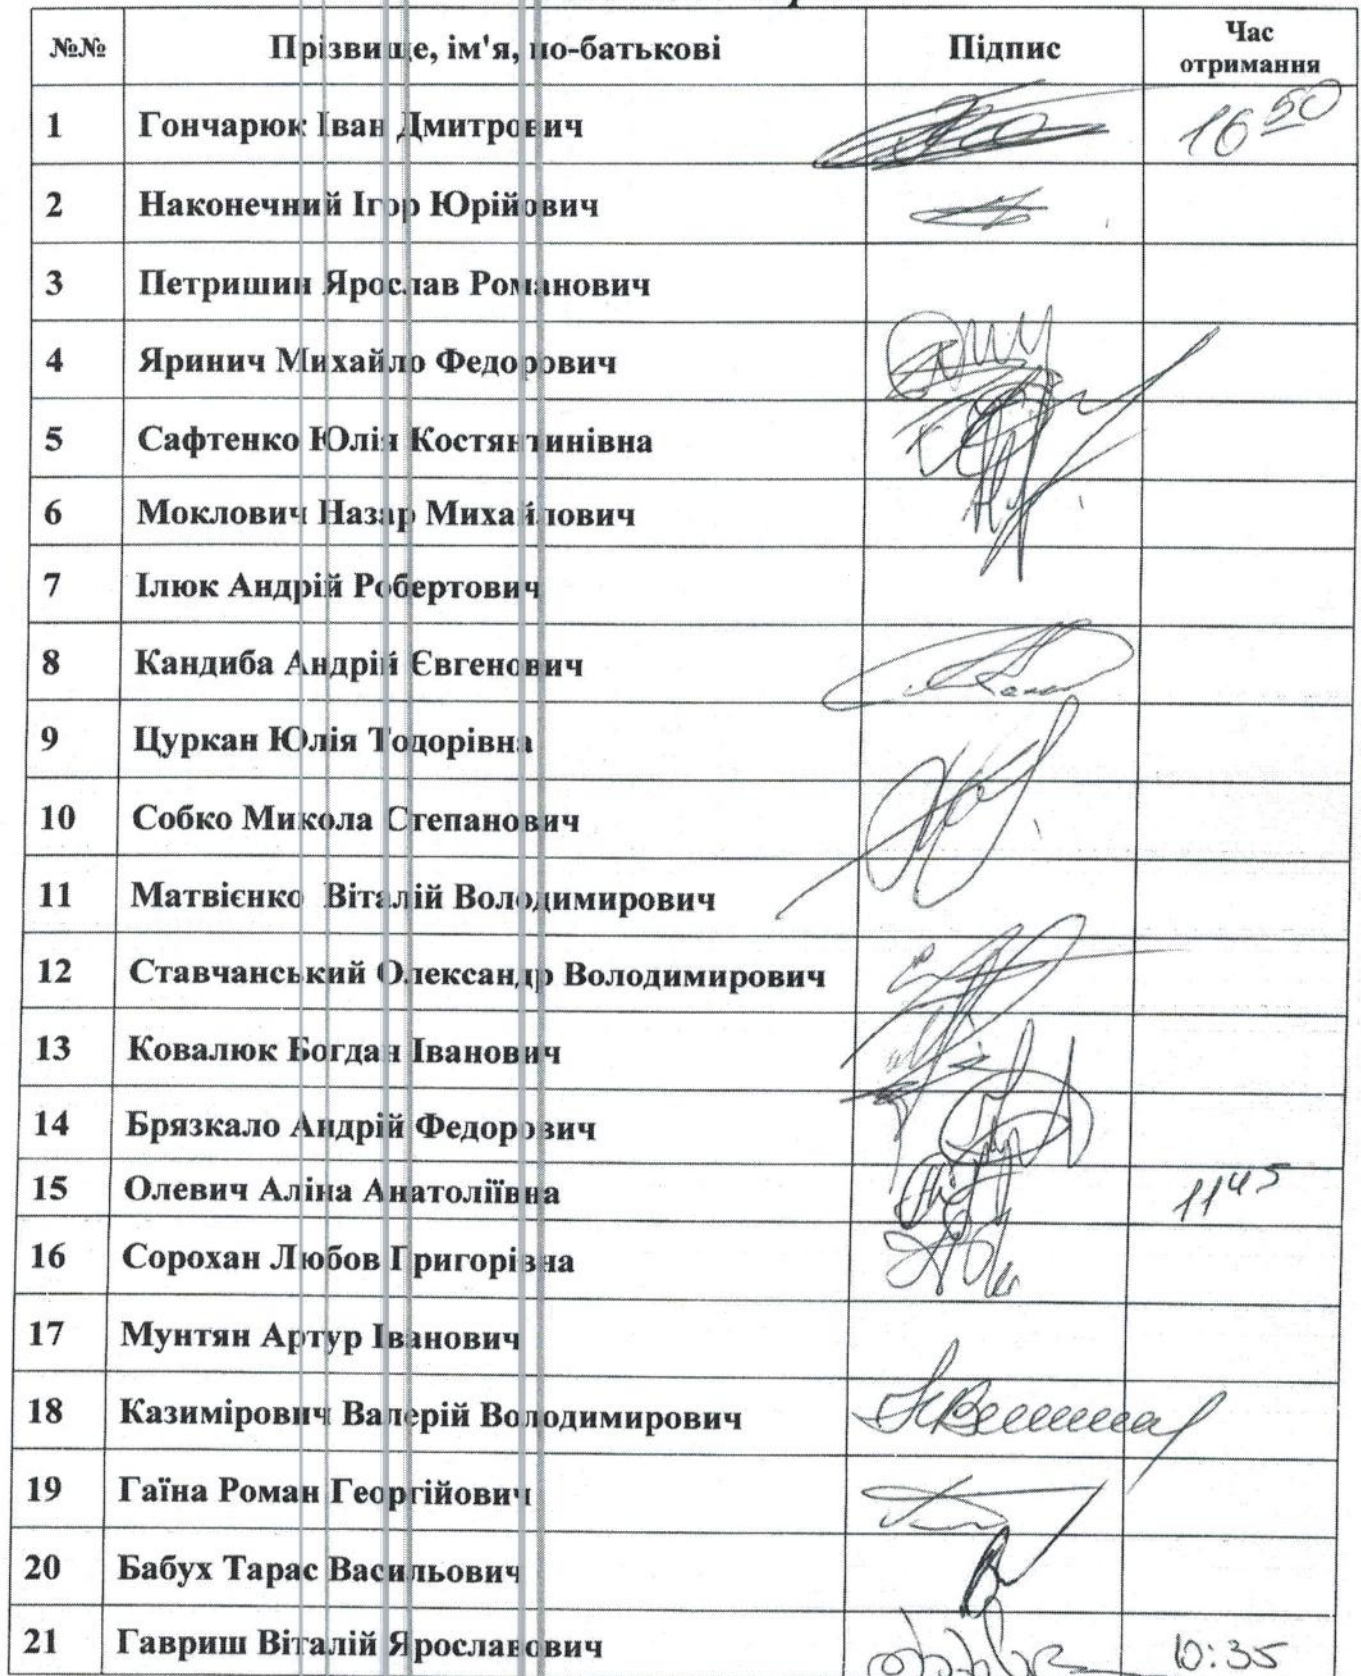 №№ Прізвище, ім'я, по-батькові Підпис Час отримання
1 Гончарюк Іван Дмитрович 16 50
2 Наконечний Ігор Юрійович
3 Петришин Ярослав Романович
4 Яринич Михайло Федорович
5 Сафтенко Юлія Костянтинівна
6 Моклович Назар Михайлович
7 Ілюк Андрій Робертович
8 Кандиба Андрій Євгенович
9 Цуркан Юлія Тодорівна
10 Собко Микола Степанович
11 Матвієнко Віталій Володимирович
12 Ставчанський Олександр Володимирович
13 Ковалюк Богдан Іванович
14 Брязкало Андрій Федорович
15 Олевич Аліна Анатоліївна 11 45
16 Сорохан Любов Григорівна
17 Мунтян Артур Іванович
18 Казимірович Валерій Володимирович
19 Гаїна Роман Георгійович
20 Бабух Тарас Васильович
21 Гавриш Віталій Ярославович 10:35